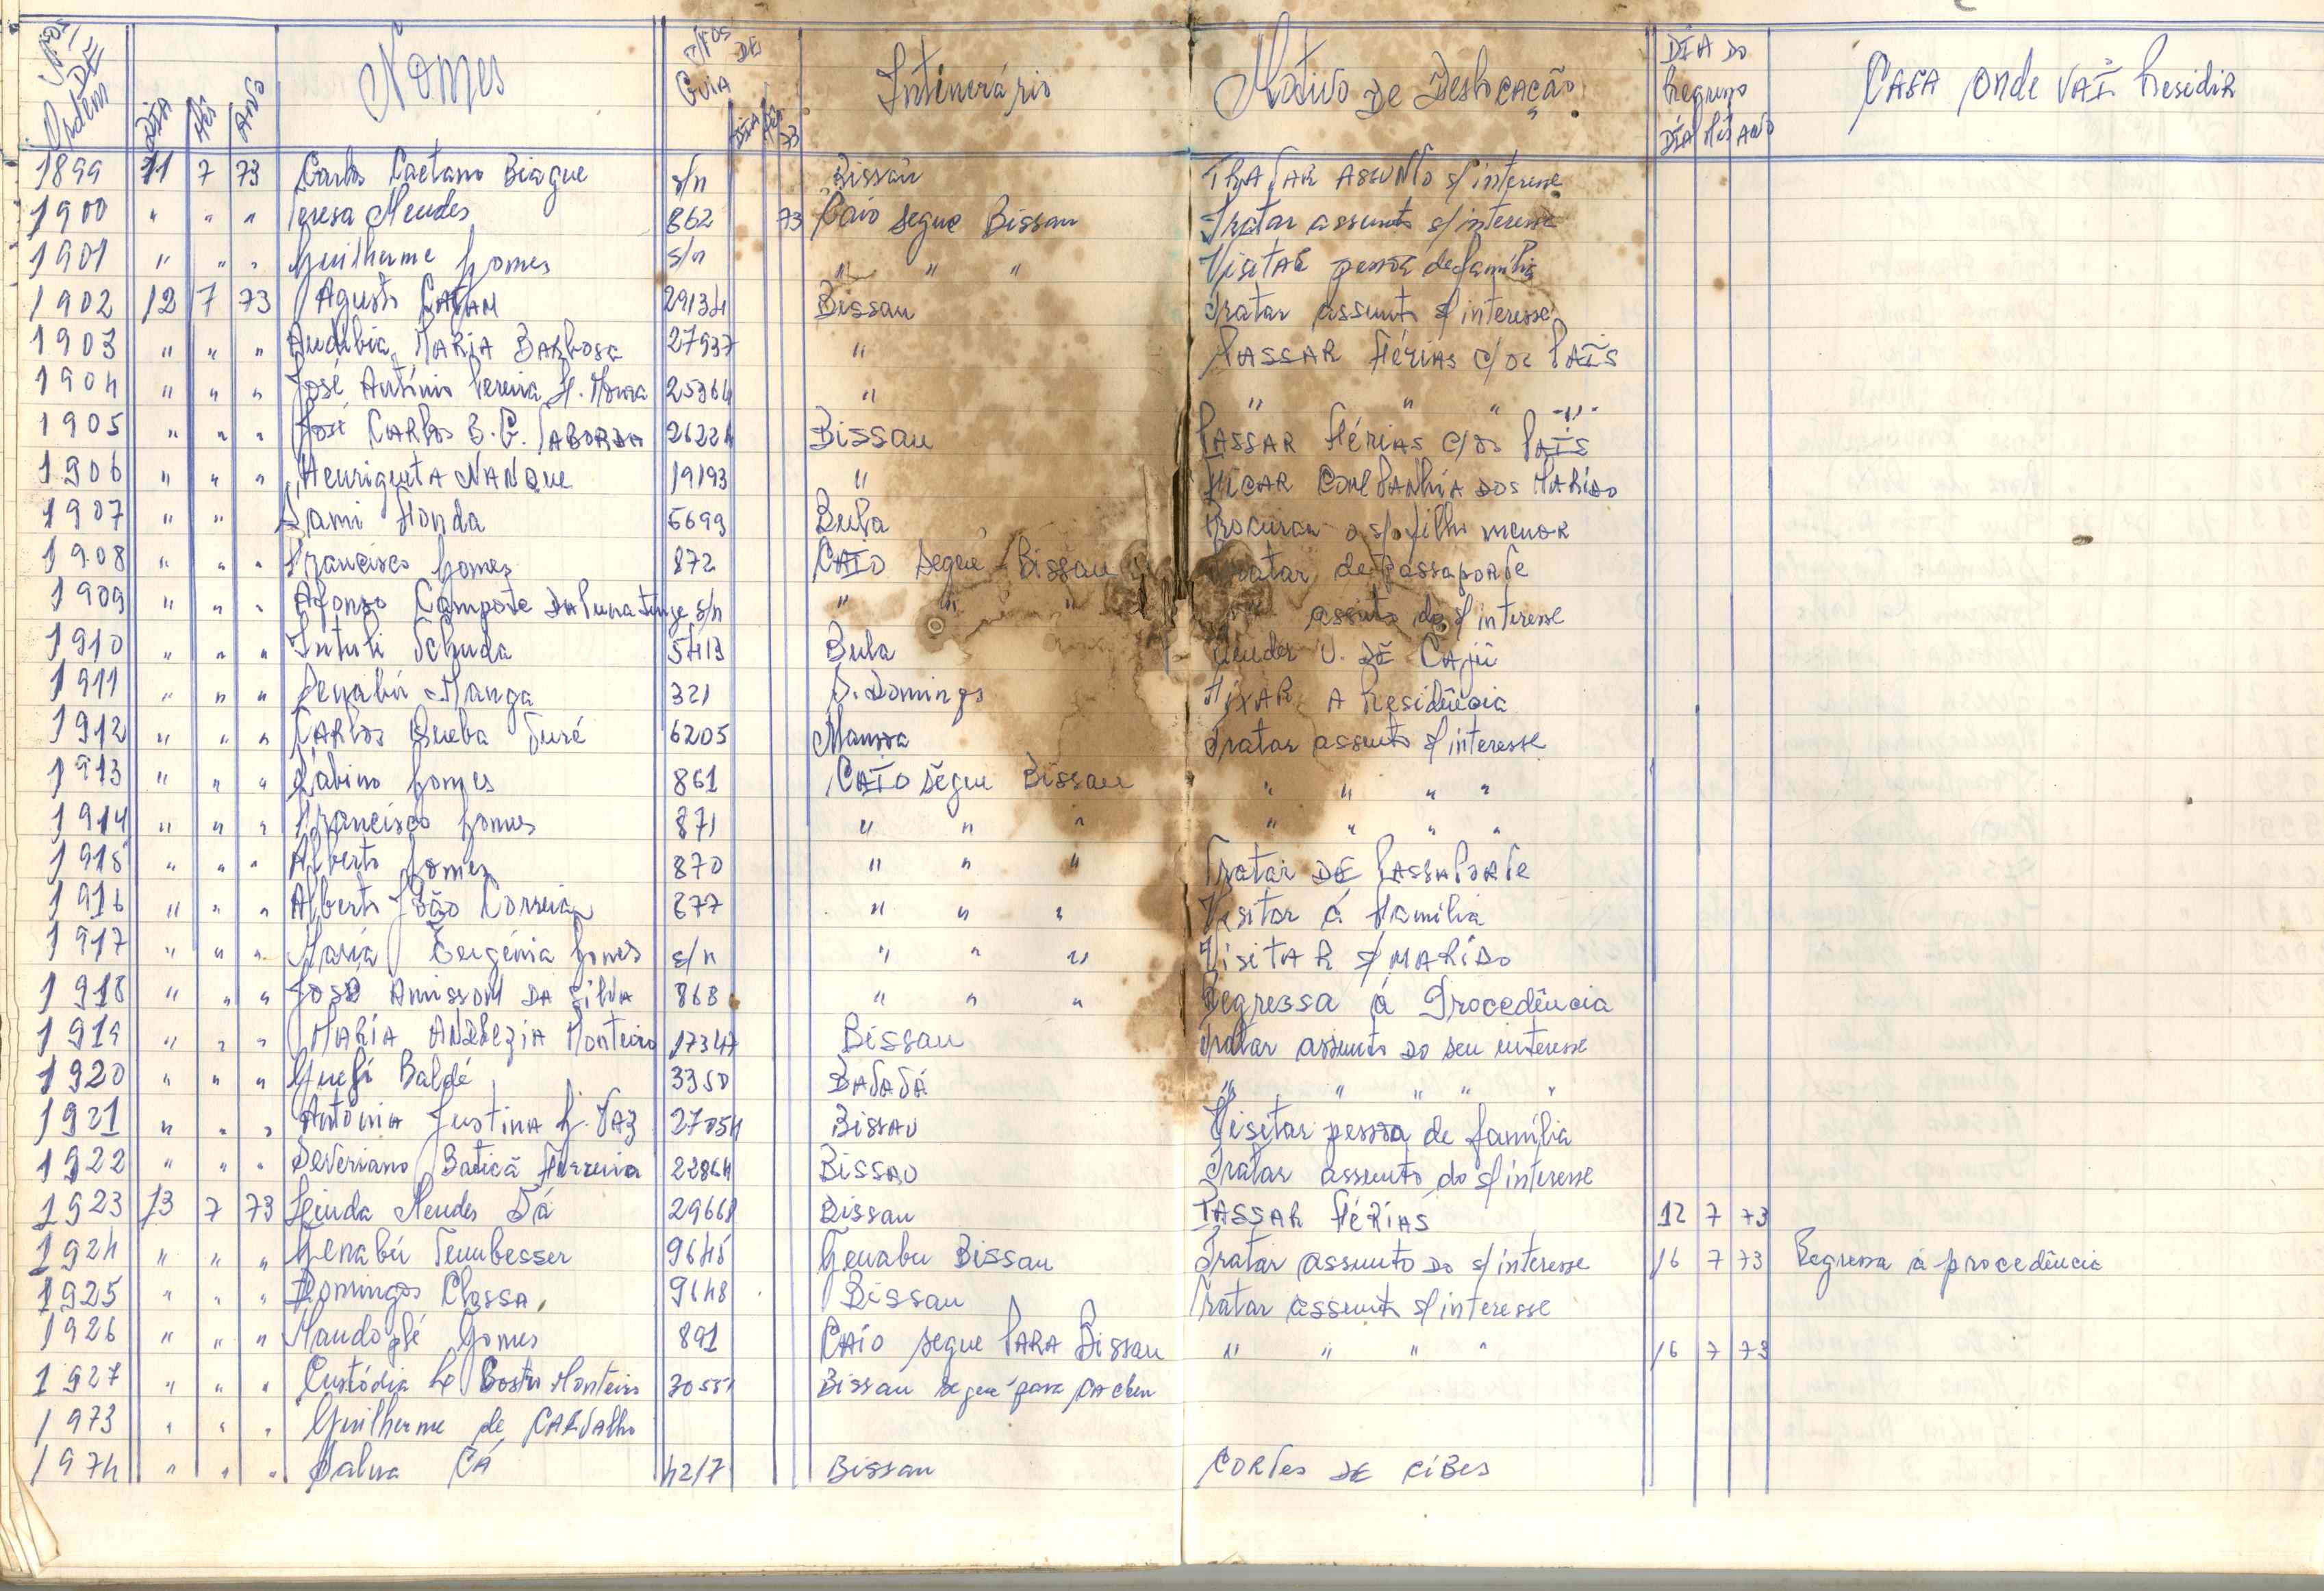 Nºos DE Ordem DIA Mês Ano Nomes Nºos DE Guia DIA Mês 73 Intinerário Motivo De Deslocação DIA Do Regresso DIA Mês Ano CASA onde VAI Residir
1899 11 7 73 Carlos Caetano Biague s/n Bissau TRATAR ASSUNTO s/interesse
1900 " " " Teresa Mendes 862 73 Caio segue Bissau Tratar assunto s/interesse
1901 " " " Guilherme Gomes s/n " " " VisitAR pessoa de família
1902 12 7 73 Agusto CATAM 29134 Bissau Tratar assunto s/interesse
1903 " " " MARIA BARbosa 27937 " PASSAR Férias c/os PAIS
1904 " " " José António Pereira H. Moura 25364 " " " " "
1905 " " " José CARlos B. G. TABORDA 26224 Bissau PASSAR Férias c/os PAIS
1906 " " " HenriquetA NANque 19193 " FicAR ComPanhia DOS MARido
1907 " " Sami Honda 5699 Bula Procurar o s/filho menor
1908 " " " Francisco Gomes 872 CAIO segue Bissau Tratar de PassaporTe
1909 " " " Afonso Campote s/n " " " " assunto do s/interesse
1910 " " " Intuti Tchuda 5419 Bula Vender V. DE CAjú
1911 " " " Denabú Manga 321 S. Domingos FixAR A Residência
1912 " " " CARlos Queba Turé 6205 Mansoa Tratar assunto s/interesse
1913 " " " Sabino Gomes 861 CAIO segue Bissau " " " "
1914 " " " Francisco Gomes 871 " " " " " " "
1915 " " " Alberto Gomes 870 " " " Tratar DE PASSAPORTe
1916 " " " Alberto João Correia 877 " " " Visitar á Família
1917 " " " Maria Eugénia Gomes s/n " " " VisitAR s/MARIDO
1918 " " " José Anissom DA SilvA 868 " " " Regressa á Procedência
1919 " " " MARIA ANDREZIA Monteiro 17347 Bissau Tratar assunto Do seu interesse
1920 " " " Guefi Baldé 3350 BAFATÁ " " " " "
1921 " " " AntóniA JustinA G. VAZ 27054 BissAU Visitar pessoa de família
1922 " " " Severiano Baticã Ferreira 22864 BissAU Tratar assunto do s/interesse
1923 13 7 73 Linda Mendes Sá 29668 Bissau PASSAR FÉRIAS 12 7 73
1924 " " " Genabú Tembesser 9645 Genabu Bissau Tratar assunto Do s/interesse 16 7 73 Regressa á procedência
1925 " " " Domingos Clossa 9648 Bissau Tratar assunto s/interesse
1926 " " " Gomes 891 CAIO segue PARA Bissau " " " " 16 7 73
1927 " " " Custódia Costa Monteiro 30551 Bissau segue para CAcheu
1973 " " " Guilherme de CARVAlho
1974 " " " Salva CÁ 42/7 Bissau CORTes DE CIBES